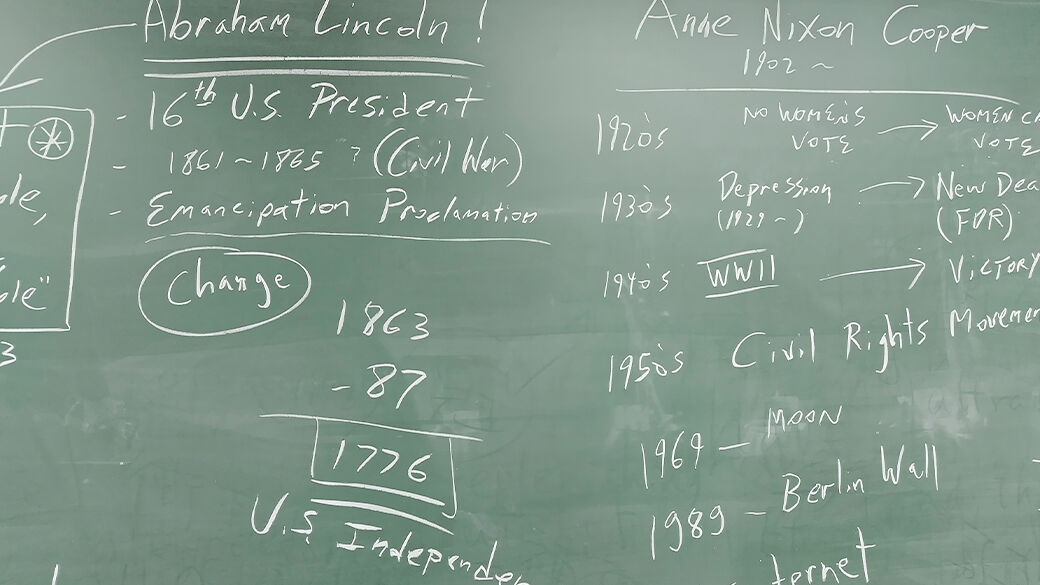 Abraham Lincoln!
- 16th U.S. President
- 1861~1865 ? (Civil War)
- Emancipation Proclamation
Change
1863
- 87
1776
U.S. Independen
ole,
ole"
3
Anne Nixon Cooper
1902 ~
1920's NO WOMEN'S VOTE → WOMEN CA VOTE
1930's Depression (1929 ~) → New Dea (FDR)
1940's WWII → VICTORY
1950's Civil Rights Movemen
1969 - MOON
1989 - Berlin Wall
- ternet